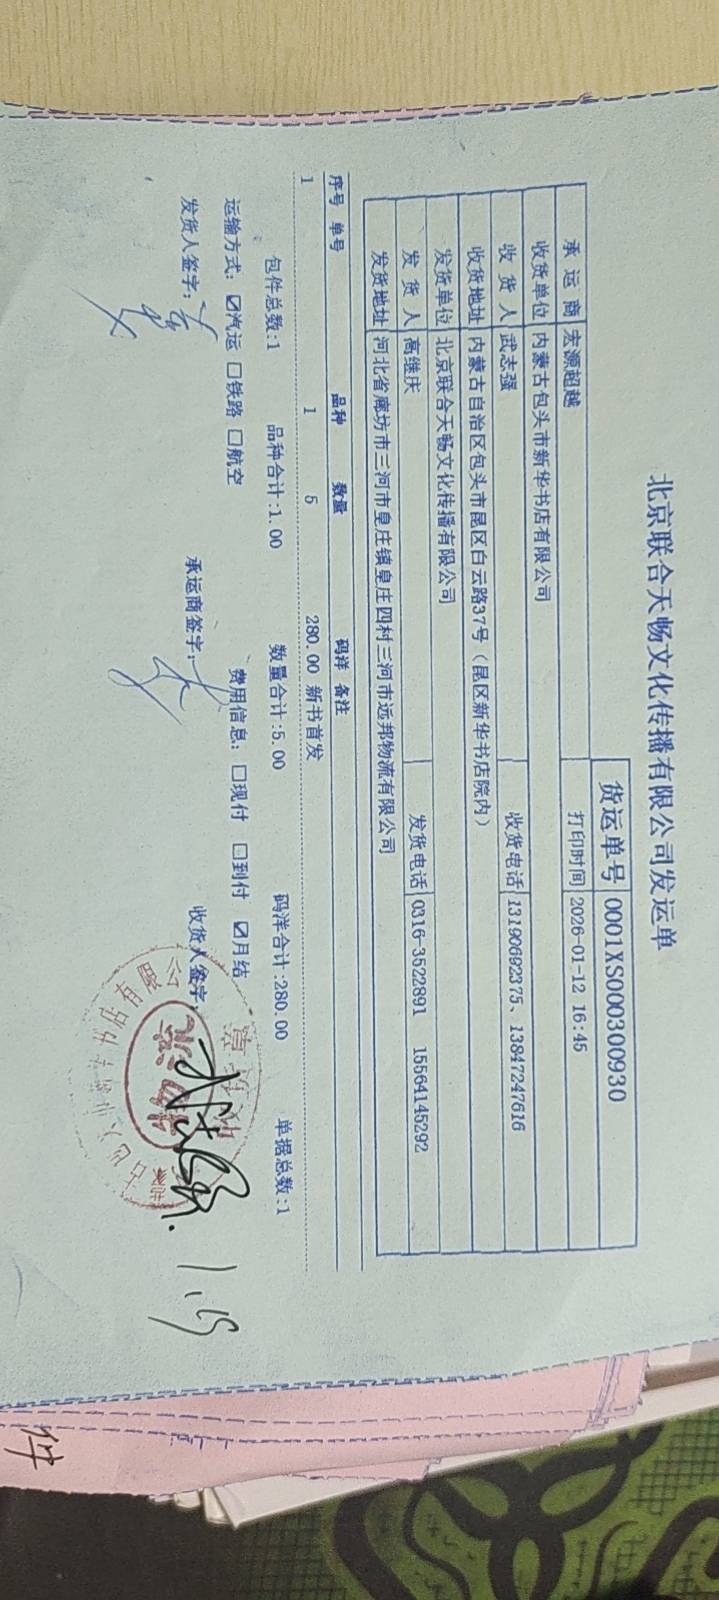 北京联合天畅文化传播有限公司发运单
货运单号 0001XS000300930
承运商 宏源超越 打印时间 2026-01-12 16:45
收货单位 内蒙古包头市新华书店有限公司
收货人 武志强 收货电话 13190692375、13847247616
收货地址 内蒙古自治区包头市昆区白云路37号（昆区新华书店院内）
发货单位 北京联合天畅文化传播有限公司
发货人 高继庆 发货电话 0316-3522891 15564145292
发货地址 河北省廊坊市三河市皇庄镇皇庄四村三河市远邦物流有限公司
序号 单号 品种 数量 码洋 备注
1 1 5 280.00 新书首发
包件总数:1 品种合计:1.00 数量合计:5.00 码洋合计:280.00 单据总数:1
运输方式: ☑汽运 □铁路 □航空 费用信息: □现付 □到付 ☑月结
发货人签字: 承运商签字: 收货人签字:
物流
1.15
件